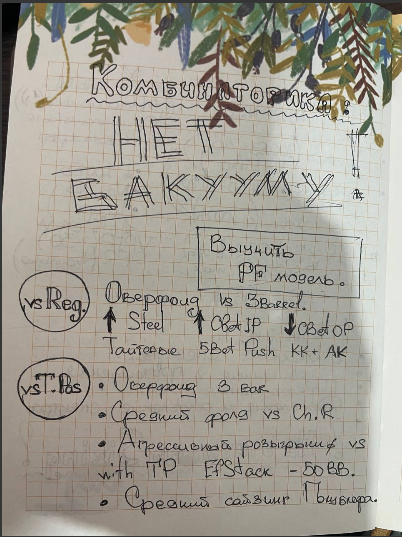 Комбинаторика:
НЕТ
ВАКУУМУ!
Выучить
PF модель.
vs Reg. Оверфолд vs 3Barrel.
↑ Steel ↑ CBet IP ↓ CBet OP
Тайтовые 5Bet Push KK+ AK
vs T.Pas • Оверфолд 3 бак
• Средний фолд vs Ch.R
• Агрессивный розыгрыш vs
with TP EfStack -50BB.
• Средний сайзинг